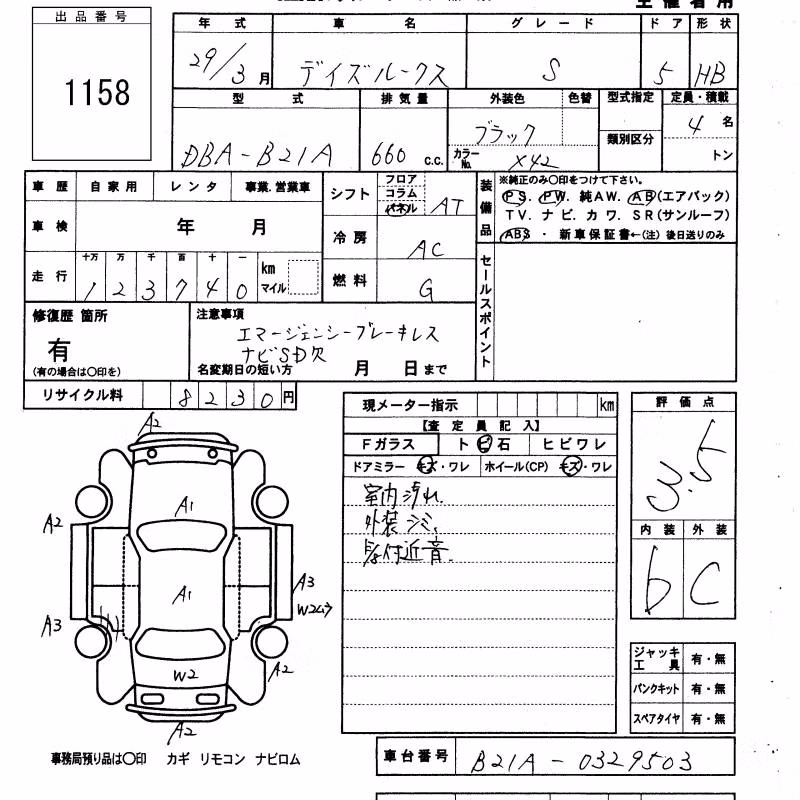 主催者用
出品番号
1158
年式 車名 グレード ドア 形状
29/3月 デイズルークス S 5 HB
型式 排気量 外装色 色替 型式指定 定員・積載
DBA-B21A 660 c.c. ブラック 類別区分 4名
カラーNo. X42 トン
車歴 自家用 レンタ 事業.営業車
車検 年 月
走行 十万 万 千 百 十 一 km マイル
1 2 3 7 4 0
シフト フロア コラム パネル AT
冷房 AC
燃料 G
装備品 ※純正のみ○印をつけて下さい。
PS. PW. 純AW. AB(エアバック)
TV. ナビ. カワ. SR(サンルーフ)
ABS ・ 新車保証書←(注) 後日送りのみ
セールスポイント
修復歴 箇所
有
(有の場合は○印を)
注意事項
エマージェンシーブレーキレス
ナビSD欠
名変期日の短い方 月 日まで
リサイクル料 8 2 3 0 円
現メーター指示 km
【査定員記入】
Fガラス トビ石 ヒビワレ
ドアミラー キズ・ワレ ホイール(CP) キズ・ワレ
室内汚れ.
外装シミ,
付近音.
評価点
3.5
内装 外装
b C
A2
A1
A2
A1
A3
W2ムラ
A3
W2
A2
A2
ジャッキ工具 有・無
パンクキット 有・無
スペアタイヤ 有・無
事務局預り品は○印 カギ リモコン ナビロム
車台番号 B21A-0329503